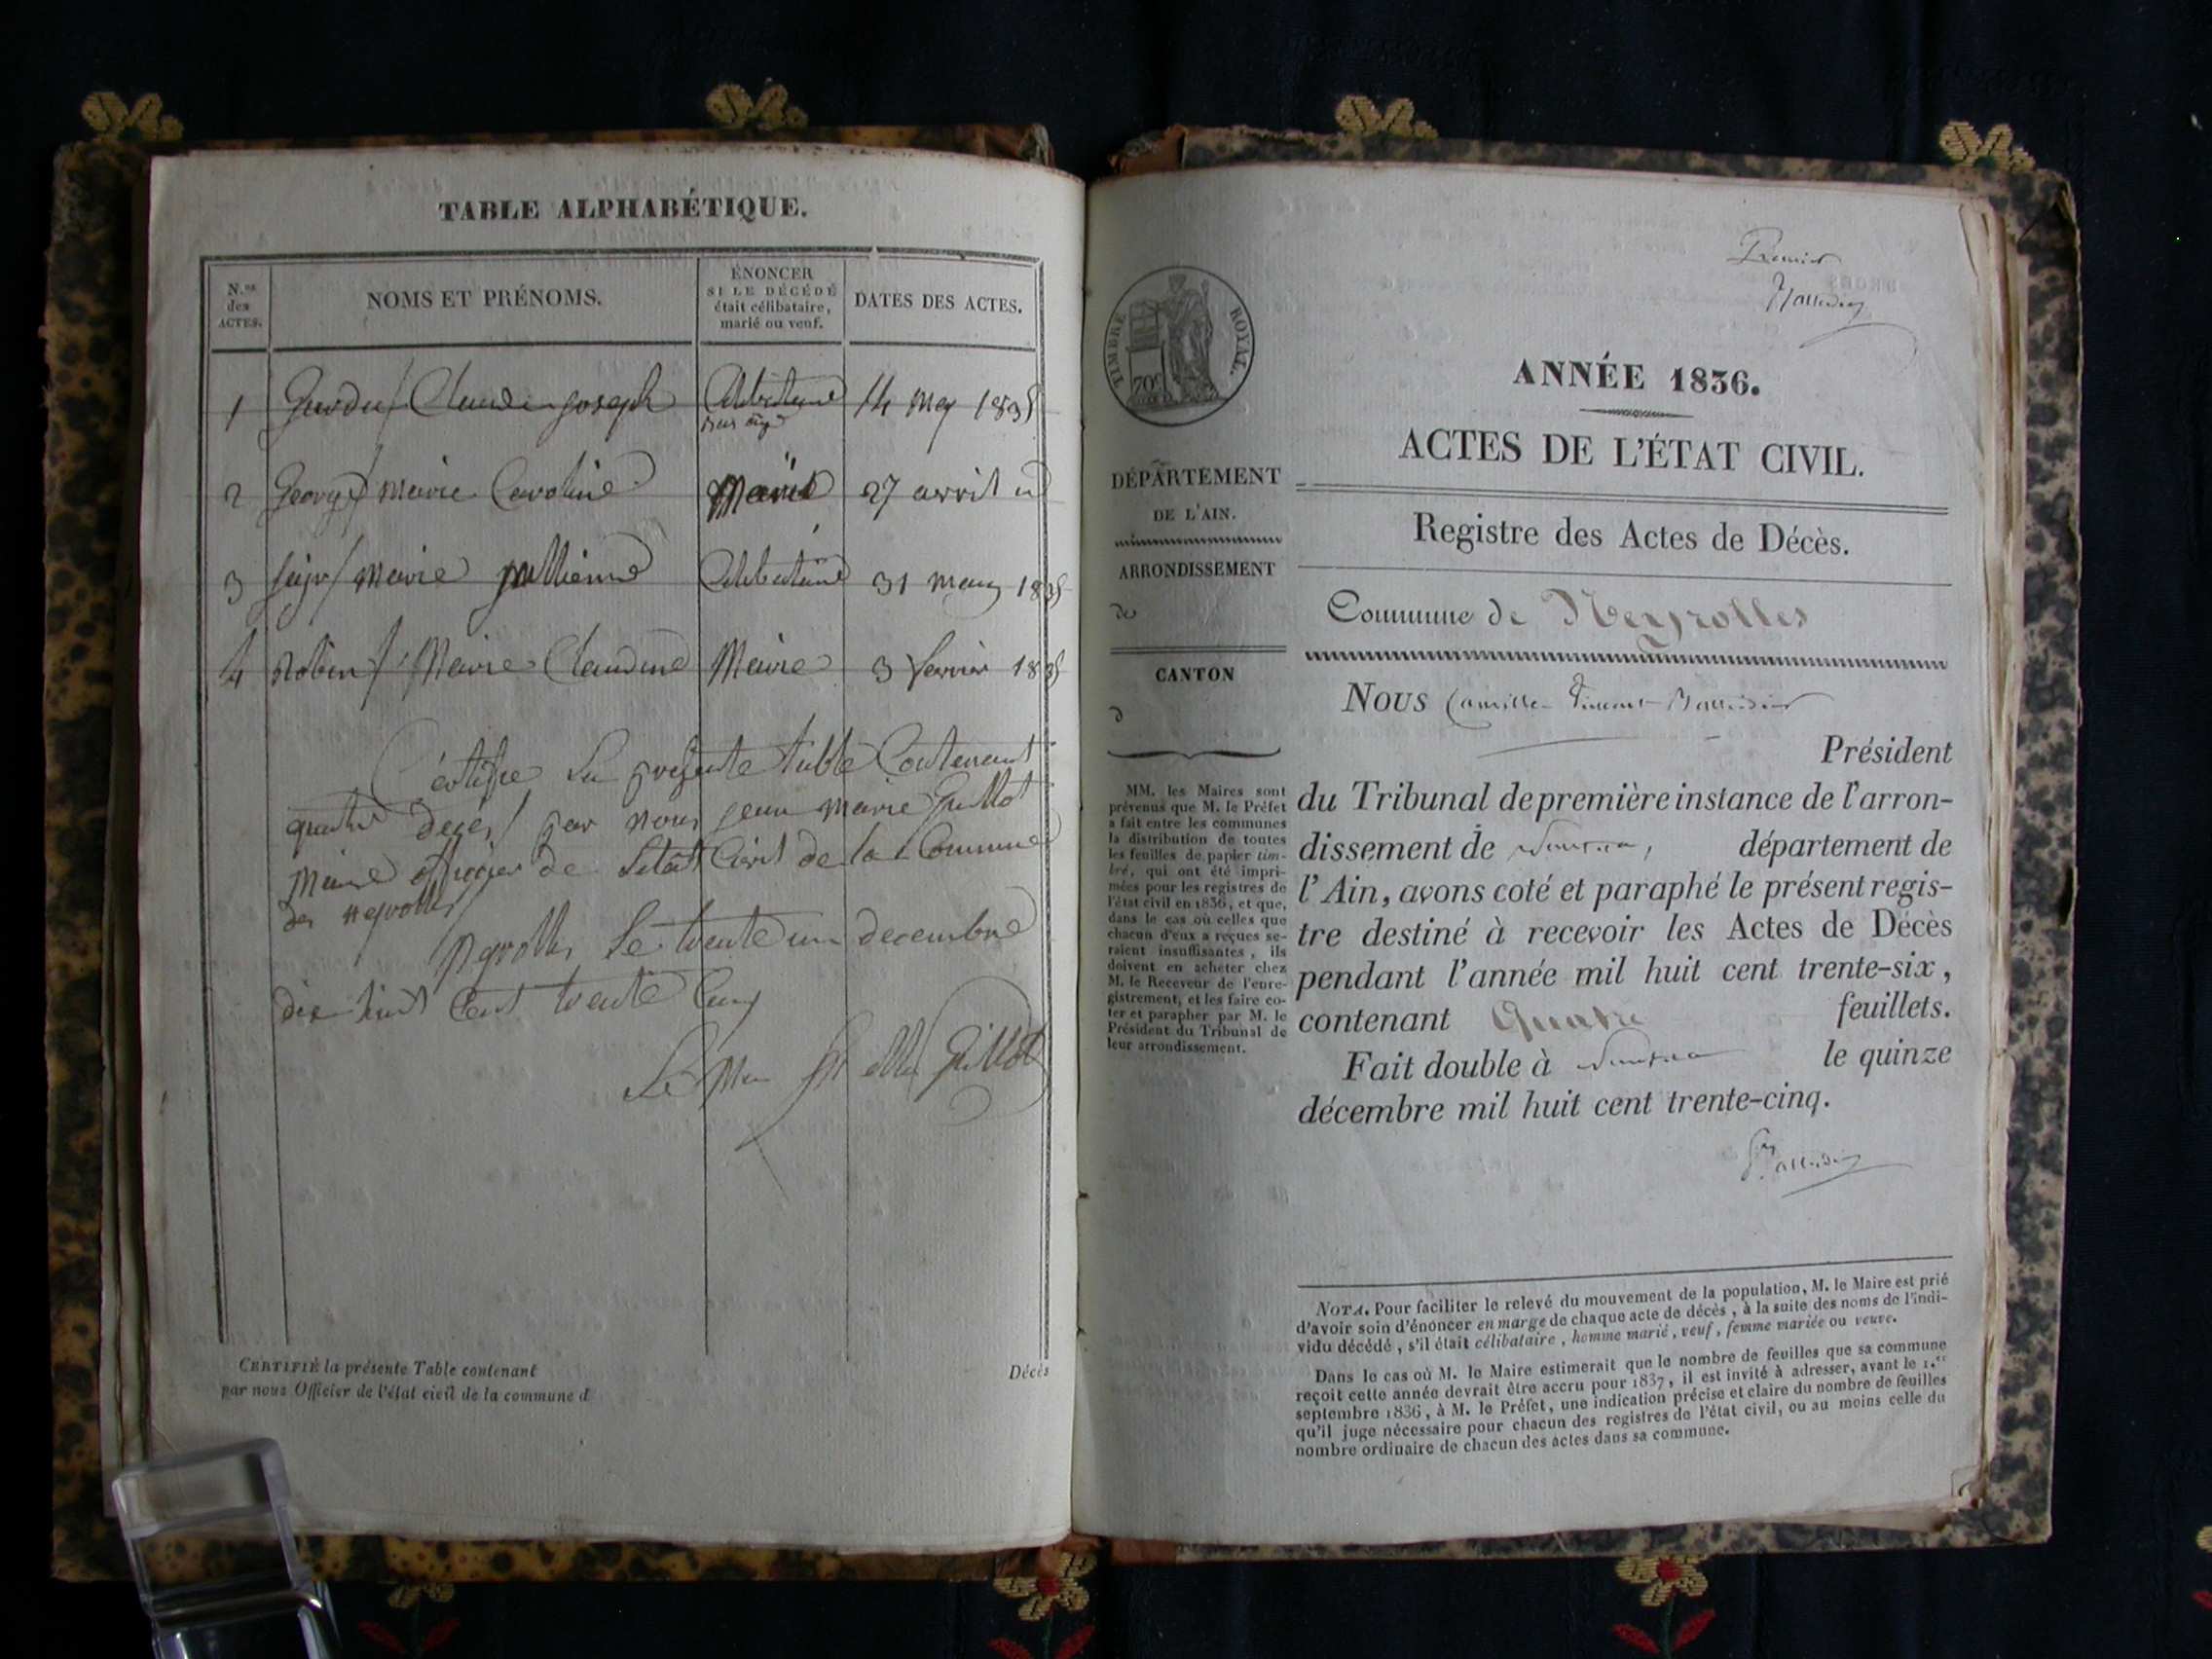 TABLE ALPHABÉTIQUE.
N.os
des
ACTES.
NOMS ET PRÉNOMS.
ÉNONCER
SI LE DÉCÉDÉ
était célibataire,
marié ou veuf.
DATES DES ACTES.
1 Claude joseph 14 mey 1835
2 Georges marie Caroline Marié 27 avril id
3 marie jullienne Celibataire 31 mars 1835
4 Robin marie Claudine Mairé 3 fevrier 1835
Certifie La presente table Contenant
quatre deces par nous jean marie Guillot
Maire officier de Letat Civil de la Commune
des neyrolles
neyrolles Le trente un decembre
dix huit Cent trente Cinq
Le Guillot
CERTIFIÉ la présente Table contenant
Décès
par nous Officier de l'état civil de la commune d
Premier
TIMBRE ROYAL.
70c
ANNÉE 1836.
ACTES DE L'ÉTAT CIVIL.
Registre des Actes de Décès.
Commune de Neyrolles
DÉPARTEMENT
DE L'AIN.
ARRONDISSEMENT
de
CANTON
d
MM. les Maires sont
prévenus que M. le Préfet
a fait entre les communes
la distribution de toutes
les feuilles de papier tim-
bré, qui ont été impri-
mées pour les registres de
l'état civil en 1836, et que,
dans le cas où celles que
chacun d'eux a reçues se-
raient insuffisantes, ils
doivent en acheter chez
M. le Receveur de l'enre-
gistrement, et les faire co-
ter et parapher par M. le
Président du Tribunal de
leur arrondissement.
NOUS Camille Vincent
Président
du Tribunal de première instance de l'arron-
dissement de Nantua, département de
l'Ain, avons coté et paraphé le présent regis-
tre destiné à recevoir les Actes de Décès
pendant l'année mil huit cent trente-six,
contenant Quatre feuillets.
Fait double à Nantua le quinze
décembre mil huit cent trente-cinq.
NOTA. Pour faciliter le relevé du mouvement de la population, M. le Maire est prié
d'avoir soin d'énoncer en marge de chaque acte de décès, à la suite des noms de l'indi-
vidu décédé, s'il était célibataire, homme marié, veuf, femme mariée ou veuve.
Dans le cas où M. le Maire estimerait que le nombre de feuilles que sa commune
reçoit cette année devrait être accru pour 1837, il est invité à adresser, avant le 1.er
septembre 1836, à M. le Préfet, une indication précise et claire du nombre de feuilles
qu'il juge nécessaire pour chacun des registres de l'état civil, ou au moins celle du
nombre ordinaire de chacun des actes dans sa commune.